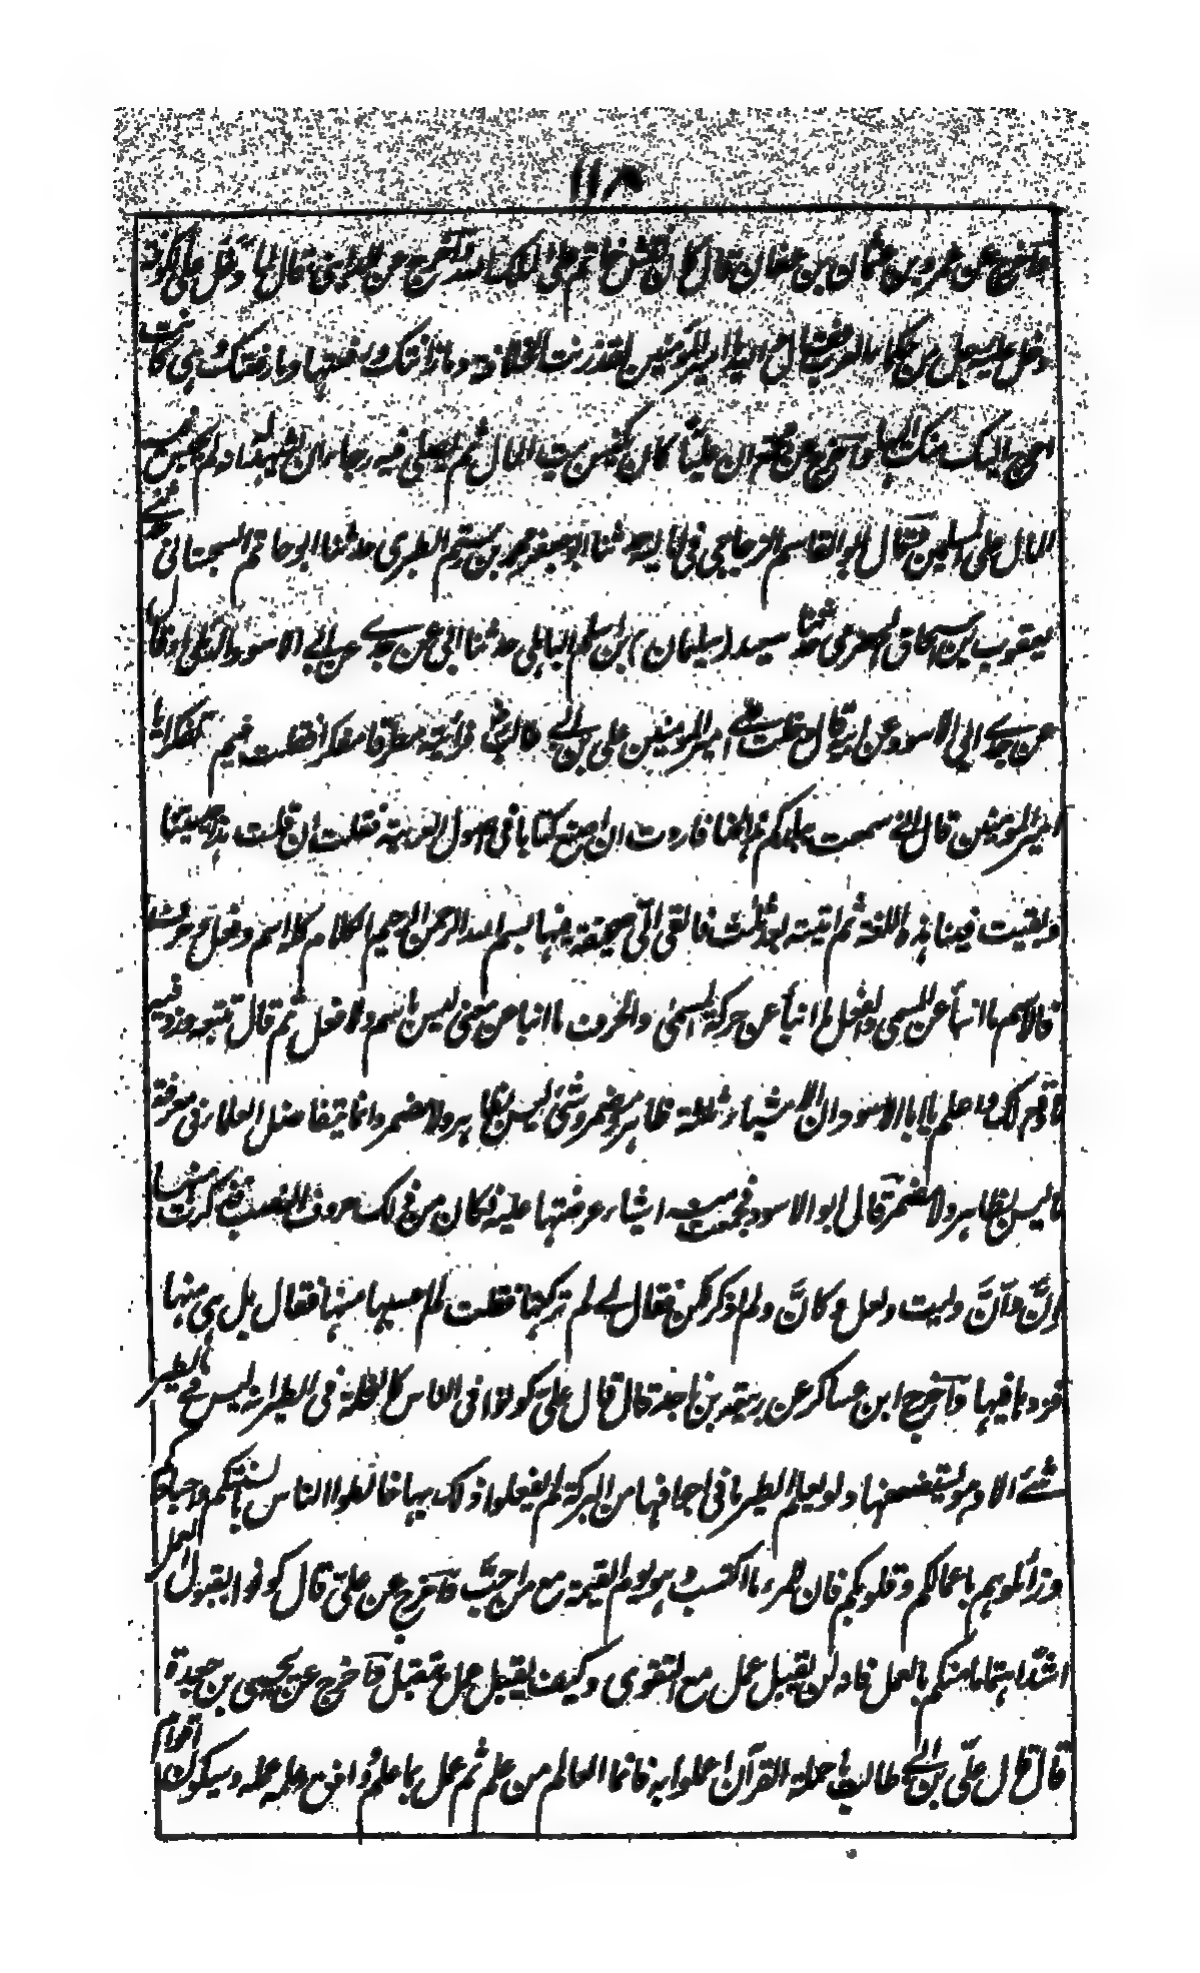 ۱۱۴
وآخرج عن عمرو بن عثمان بن عفان قال كان نقش خاتم علي الملك لله وآخرج عن المدايني قال لما دخل علي الكوفة
دخل عليه رجل من حكماء العرب فقال والله يا امير المؤمنين لقد زنت الخلافة وما زانتك ورفعتها وما رفعتك وهي كانت
احوج اليك منك اليها وآخرج عن مجمع ان عليّا كان يكنس بيت المال ثم يصلي فيه رجاء ان يشهد له انه لم يحبس فيه
المال على المسلمين وقال ابو القاسم الزجاجي في اماليه حدثنا ابو جعفر محمد بن رستم الطبري حدثنا ابو حاتم السجستاني حدثني
يعقوب بن اسحاق الحضرمي حدثنا سعيد بن سليمان بن اسلم الباهلي حدثنا ابي عن جدي عن ابي الاسود الدئلي او قال
عن جدي ابي الاسود عن ابيه قال دخلت على امير المؤمنين علي بن ابي طالب فرأيته مطرقا مفكرا فقلت فيم تفكر يا
امير المؤمنين قال اني سمعت ببلدكم هذا لحنا فاردت ان اصنع كتابا في اصول العربية فقلت ان فعلت هذا احييتنا
وبقيت فينا هذه اللغة ثم اتيته بعد ثلث فالقى اليّ صحيفة فيها بسم الله الرحمن الرحيم الكلام كله اسم وفعل وحرف
فالاسم ما انبأ عن المسمى والفعل ما انبأ عن حركة المسمى والحرف ما انبأ عن معنى ليس باسم ولا فعل ثم قال تتبعه وزد فيه
ما وقع لك واعلم يا ابا الاسود ان الاشياء ثلاثة ظاهر ومضمر وشئ ليس بظاهر ولا مضمر وانما يتفاضل العلماء في معرفة
ما ليس بظاهر ولا مضمر قال ابو الاسود فجمعت منه اشياء وعرضتها عليه فكان من ذلك حروف النصب فذكرت منها
اِنّ وأنّ وليت ولعل وكانّ ولم اذكر لكن فقال لي لم تركتها فقلت لم احسبها منها فقال بل هي منها
فزدها فيها وآخرج ابن عساكر عن ربيعة بن ناجد قال قال عليّ كونوا في الناس كالنحلة في الطير انه ليس في الطير
شئ الا وهو يستضعفها ولو يعلم الطير ما في اجوافها من البركة لم يفعلوا ذلك بها خالطوا الناس بالسنتكم واجسادكم
وزائلوهم باعمالكم وقلوبكم فان للمرء ما اكتسب وهو يوم القيمة مع من احبّ وآخرج عن عليّ قال كونوا بقبول العمل
اشدّ اهتماما منكم بالعمل فانه لن يقبل عمل مع التقوى وكيف يقبل عمل متقبل وآخرج عن يحيى بن جعدة
قال قال عليّ بن ابي طالب يا حملة القرآن اعملوا به فانما العالم من علم ثم عمل بما علم ووافق علمه عمله وسيكون اقوام